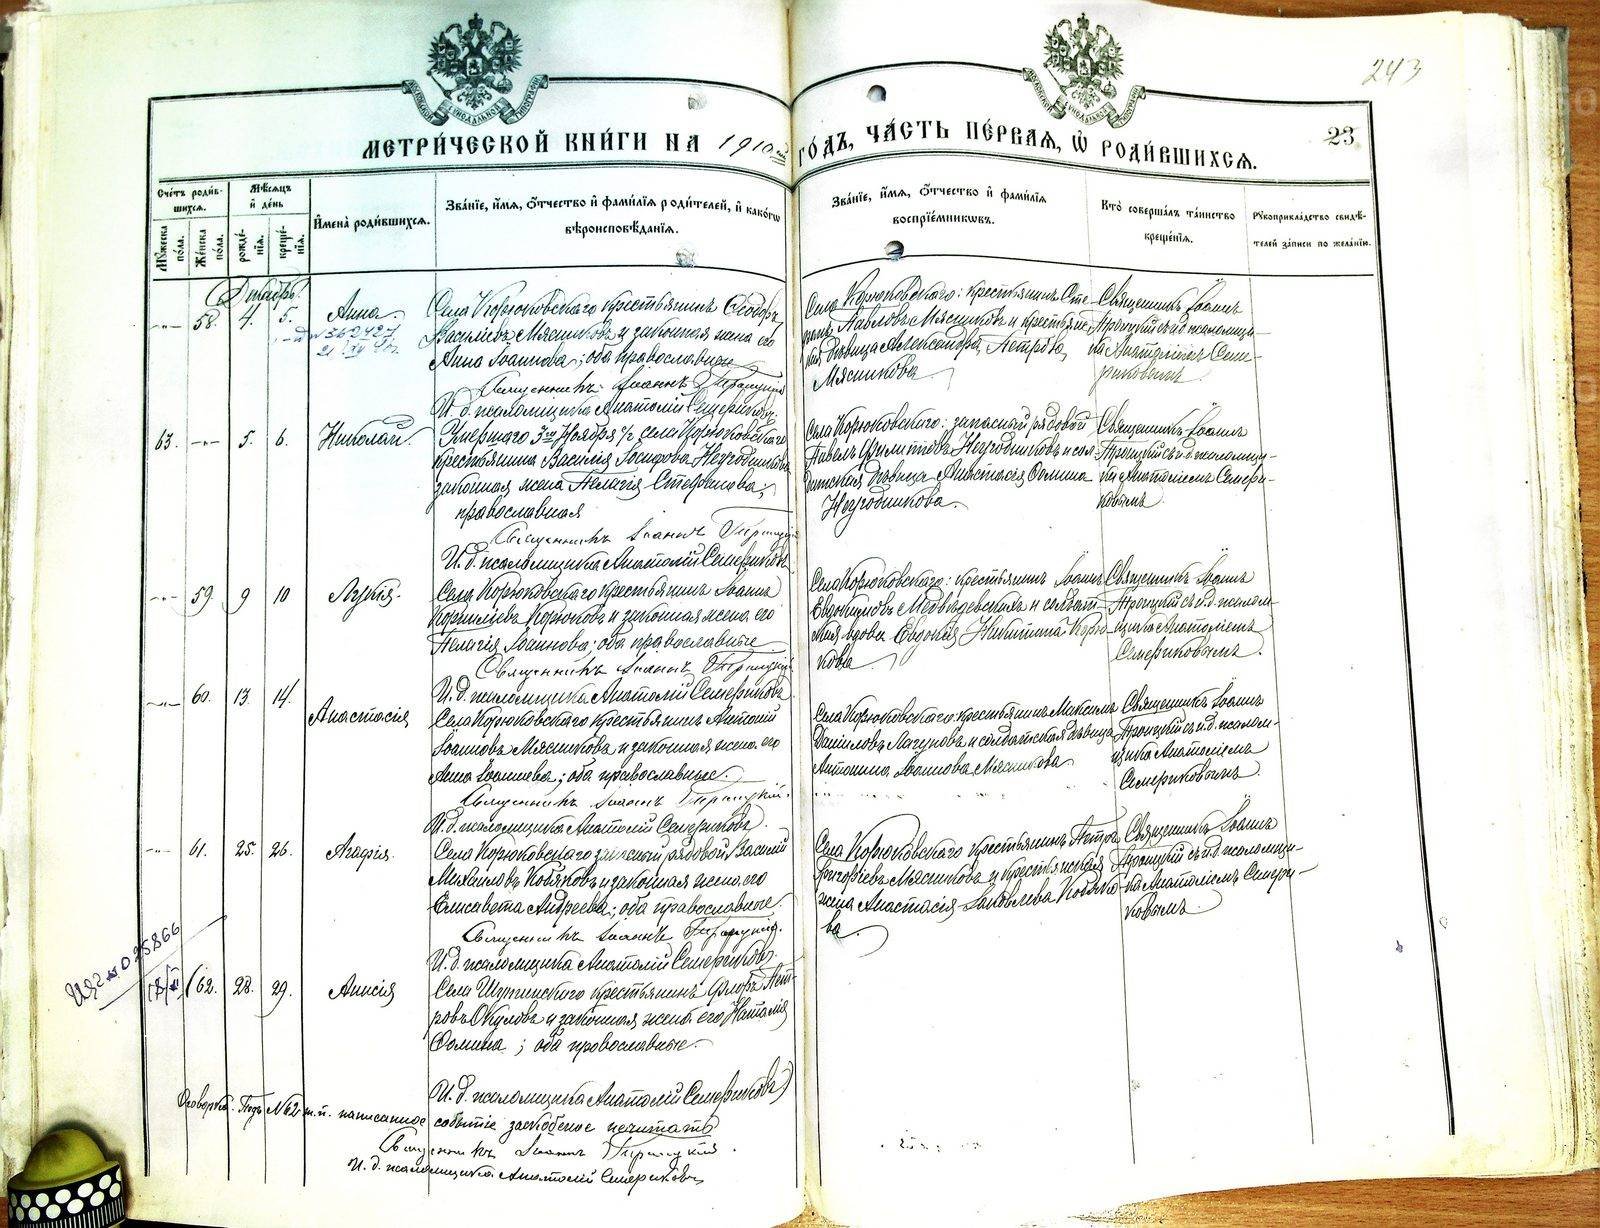 243
МОСКОВСКОЙ СѴНОДАЛЬНОЙ ТИПОГРАФІИ
МОСКОВСКОЙ СѴНОДАЛЬНОЙ ТИПОГРАФІИ
МЕТРИ́ЧЕСКОЙ КНИ́ГИ НА 1910 ГО́ДЪ, ЧА́СТЬ ПЕ́РВАЯ, Ѡ҆ РОДИ́ВШИХСЯ.
23
Сче́тъ роди́в-
шихся.
Мѣ́сяцъ
и҆ де́нь
Мꙋ́жеска
по́ла.
Же́нска
по́ла.
рожде́-
нїя.
креще́-
нїя.
И҆мена̀ роди́вшихся.
Зва́нїе, и҆́мя, ѻ҆́тчество и҆ фами́лїя роди́телей, и҆ како́гѡ
вѣроисповѣ́данїя.
Зва́нїе, и҆́мя, ѻ҆́тчество и҆ фами́лїя
воспрїе́мникѡвъ.
Кто̀ соверша́лъ та́инство
креще́нїя.
Рꙋкоприкла́дство свидѣ́-
телей за́писи по жела́нїю.
Декабрь.
-"- 58. 4. 5. Анна.
Села Корюковскаго крестьянинъ Ѳеодоръ
Васильевъ Мясниковъ и законная жена его
Анна Іоаннова; оба православные
Священникъ Іоаннъ Троицкій
И. д. псаломщика Анатолій Семериковъ.
Села Корюковскаго: крестьянинъ Сте-
Павловъ Мясниковъ и крестьян-
дѣвица Александра Петрова
Мясникова
Священникъ Іоаннъ
Троицкій съ и.д. псаломщи-
ка Анатоліемъ Семе-
риковымъ
63. -"- 5. 6. Николай.
Умершаго 3го Ноября с/г села Корюковскаго
крестьянина Василія Іосифова Негодникова
законная жена Пелагія Стефанова;
православная
Священникъ Іоаннъ Троицкій
И. д. псаломщика Анатолій Семериковъ
Села Корюковскаго: запасный рядовой
Павелъ Филиповъ Негодниковъ и сол-
датская дѣвица Анастасія Ѳомина
Негодникова.
Священникъ Іоаннъ
Троицкій съ и.д. псаломщи-
ка Анатоліемъ Семери-
ковымъ
-"- 59. 9 10 Лукія.
Села Корюковскаго крестьянинъ Іоаннъ
Корниліевъ Корюковъ и законная жена его
Пелагія Іоаннова; оба православные
Священникъ Іоаннъ Троицкій
И. д. псаломщика Анатолій Семериковъ
Села Корюковскаго: крестьянинъ Іоаннъ
Евдокимовъ Медвѣдевскихъ и солдат-
кая вдова Евдокія Никитина Корю-
кова
Священникъ Іоаннъ
Троицкій съ и.д. псалом-
щика Анатоліемъ
Семериковымъ.
-"- 60. 13. 14. Анастасія
Села Корюковскаго крестьянинъ Антоній
Іоанновъ Мясниковъ и законная жена его
Анна Іоаннова; оба православные.
Священникъ Іоаннъ Троицкій.
И. д. псаломщика Анатолій Семериковъ.
Села Корюковскаго: крестьянинъ Максимъ
Даниловъ Лагуновъ и солдатская дѣвица
Антонина Іоаннова Мясникова
Священникъ Іоаннъ
Троицкій съ и.д. псалом-
щика Анатоліемъ
Семериковымъ.
-"- 61. 25. 26. Агафія.
Села Корюковскаго запасный рядовой Василій
Михаиловъ Кобяковъ и законная жена его
Елисавета Андреева; оба православные.
Священникъ Іоаннъ Троицкій.
И. д. псаломщика Анатолій Семериковъ.
Села Корюковскаго крестьянинъ Петръ
Григорьевъ Мясникова и крестьянская
жена Анастасія Іаковлева Кобяко-
ва.
Священникъ Іоаннъ
Троицкій съ и.д. псаломщи-
ка Анатоліемъ Семери-
ковымъ
025866
(62. 28. 29. Анисія
Села крестьянинъ Флоръ Пет-
ровъ Окуловъ и законная жена его Наталія
Ѳомина; оба провославные.
И. д. псаломщика Анатолій Семериковъ)
Оговорка. Подъ №62 ж.п. написанное событіе заскобеное нечитать
Священникъ Іоаннъ Троицкій.
И. д. псаломщика Анатолій Семериковъ